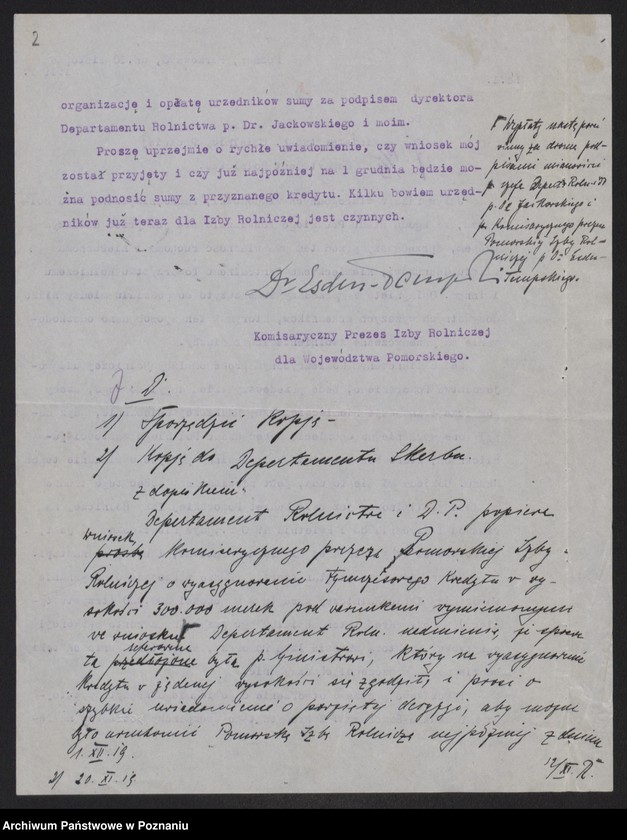 2
organizację i opłatę urzedników sumy za podpisem dyrektora
Departamentu Rolnictwa p. Dr. Jackowskiego i moim.
Proszę uprzejmie o rychłe uwiadomienie, czy wniosek mój
został przyjęty i czy już najpóźniej na 1 grudnia będzie mo-
żna podnosić sumy z przyznanego kredytu. Kilku bowiem urzęd-
ników już teraz dla Izby Rolniczej jest czynnych.
Wypłaty nastąpić
winny za dwom pod-
pisami mianowicie
p. szefa Depart. Roln. i D
p. Dr Jackowskiego i
p. Komisarycznego prezesa
Pomorskiej Izby Rol-
niczej p. Dr Esden-
Tempskiego.
Dr Esden-Tempski
Komisaryczny Prezes Izby Rolniczej
dla Województwa Pomorskiego.
D.
1) Sporządzić kopję -
2) Kopję do Departamentu Skarbu.
z dopiskiem:
Departament Rolnictwa i D. P. popiera
wniosek
prośbę Komisarycznego prezesa Pomorskiej Izby
Rolniczej o wyasygnowanie tymczasowego kredytu w wy-
sokości 300.000 marek pod warunkami wymienionymi
we wniosku. Departament Roln. nadmienia, że sprawa
referowana
ta przedłożone była p. Ministrowi, który na wyasygnowanie
kredytu w żądanej wysokości się zgodził, i prosi o
szybkie uwiadomienie o powziętej decyzji, aby można
było uruchomić Pomorską Izbę Rolniczą najpóźniej z dniem
1. XII. 19.
3) 20. XI. 19
12/XI. R.
Archiwum Państwowe w Poznaniu